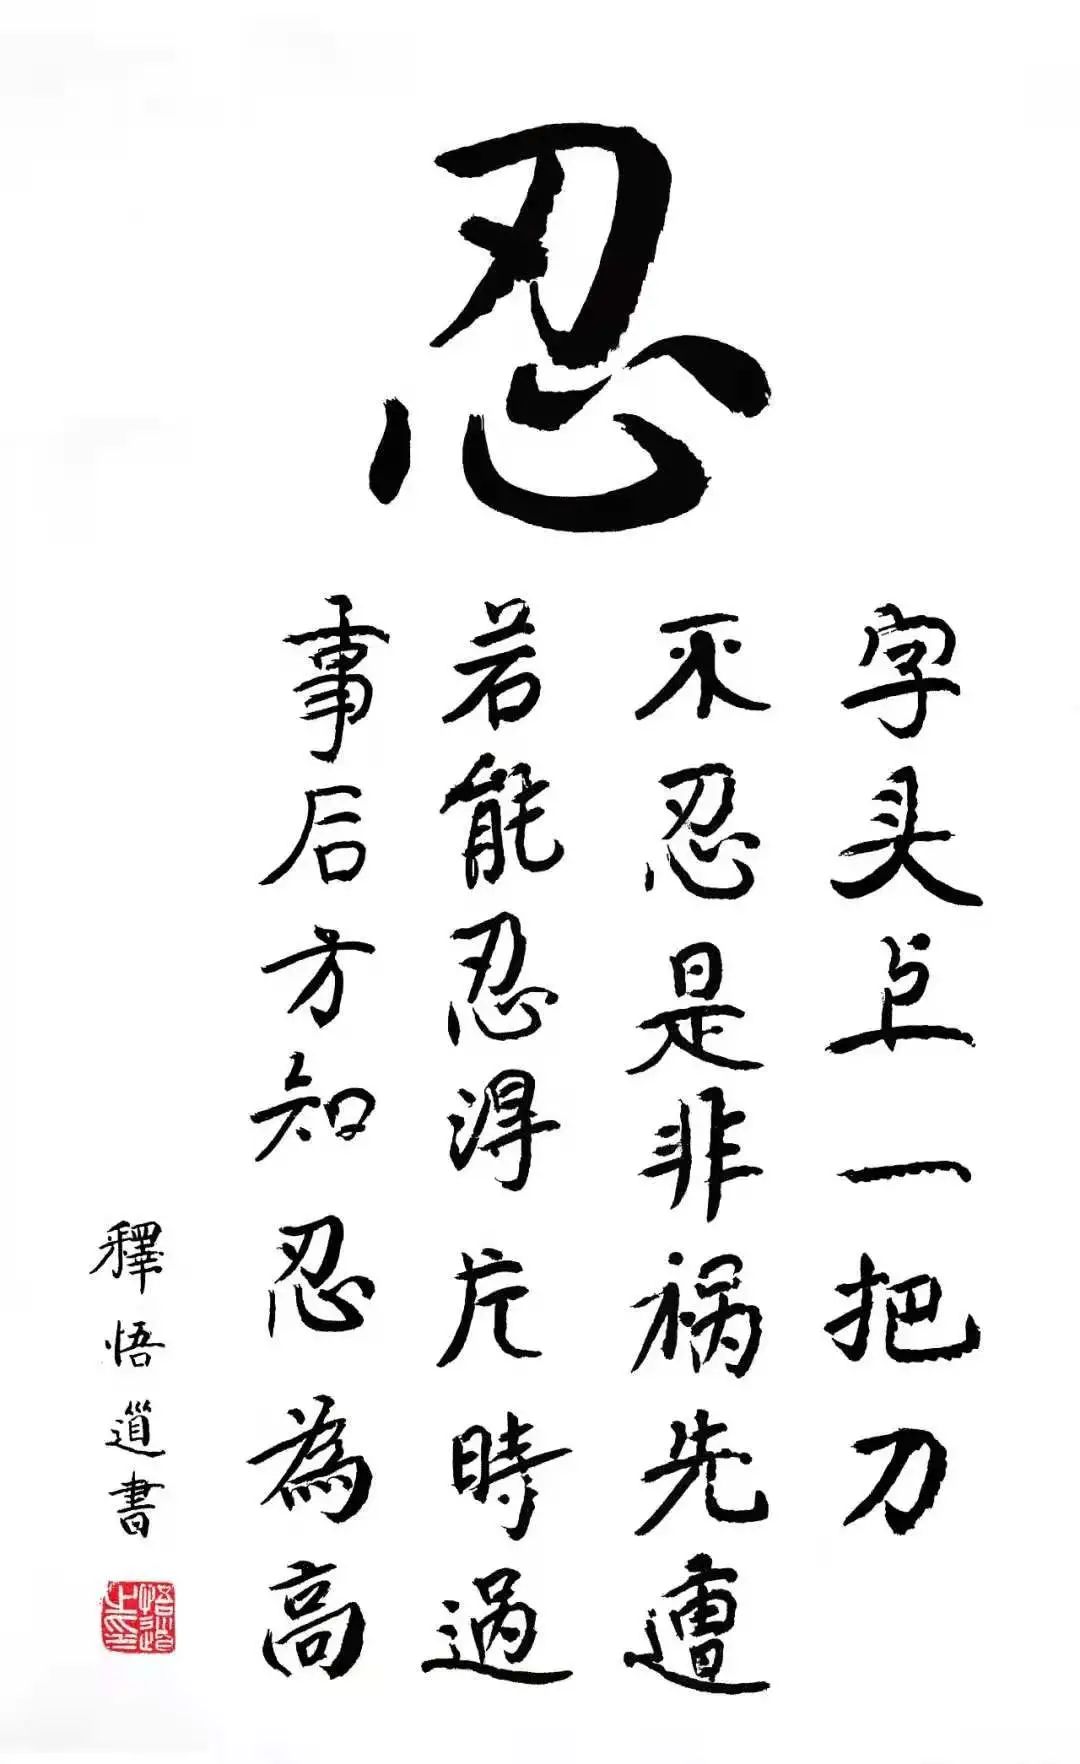 忍
字头上一把刀
不忍是非祸先遭
若能忍得片時过
事后方知忍為高
釋悟道書
悟道之印